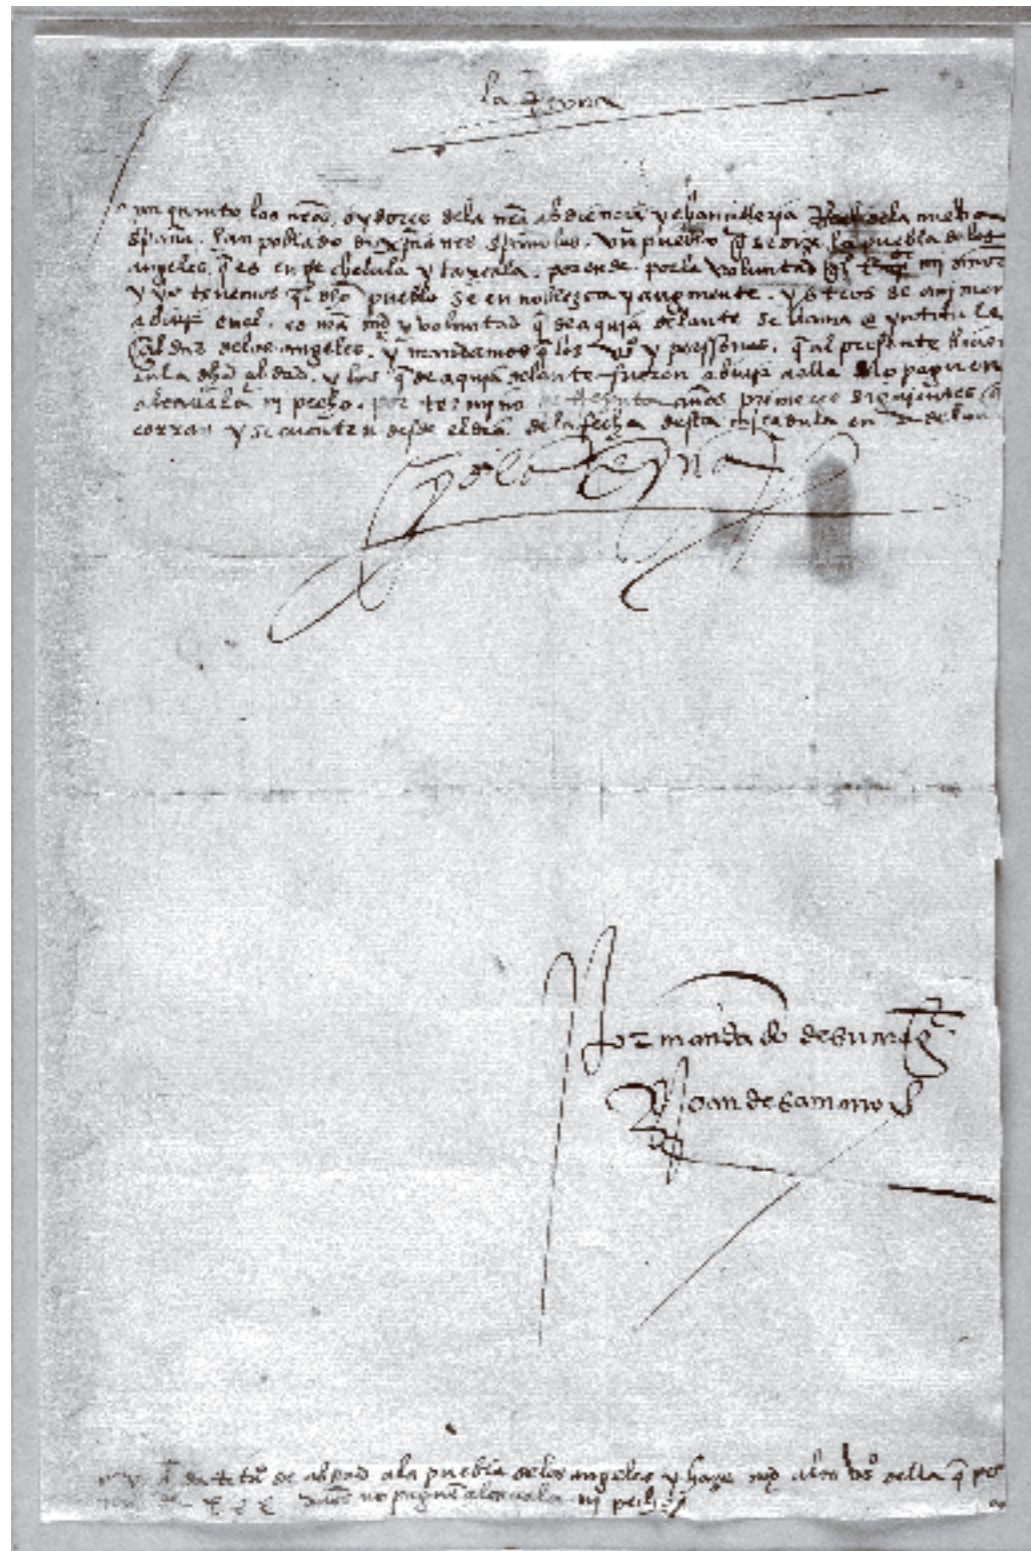 la Reyna
por quanto los nros oydores dela nra abdiencia y chancilleria dela nueva
españa. han poblado de xpianos españoles. Un pueblo q se dize la puebla delos
angeles. q es entre chelula y taxcala. porende. por la voluntad mi señor
y yo tenemos ql dho pueblo se ennoblezca y augmente. y otros se animen
a bivir enel. es nra md y voluntad q de aqui a delante se llame e yntitule
Cibdad delos angeles. y mandamos q los vos y personas. q al presente biven
enla dha cibdad. y los q de aqui adelante fueren a bivir a ella No paguen
alcavala ni pecho. por termino de treynta años primeros siguientes q
corran y se cuenten desde el dia dela fecha desta mi cedula en
yo la Reyna
por mandado de su mag
Joan de samano
da titulo de cibdad ala puebla delos angeles y haze md alos vos della q por
xxx años no paguen alcavala ni pecho